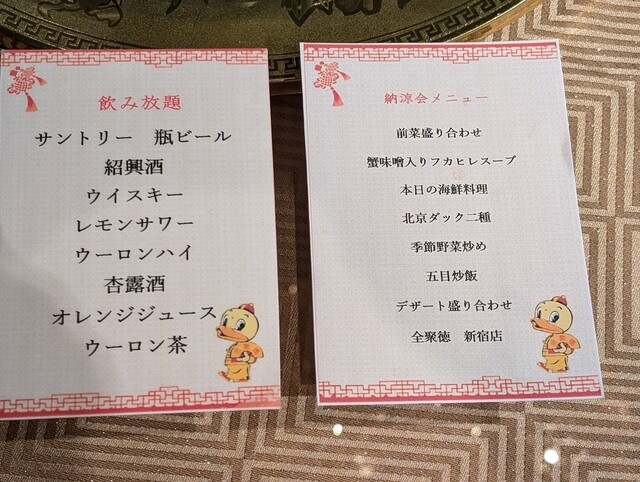 飲み放題
サントリー　瓶ビール
紹興酒
ウイスキー
レモンサワー
ウーロンハイ
杏露酒
オレンジジュース
ウーロン茶
納涼会メニュー
前菜盛り合わせ
蟹味噌入りフカヒレスープ
本日の海鮮料理
北京ダック二種
季節野菜炒め
五目炒飯
デザート盛り合わせ
全聚徳　新宿店